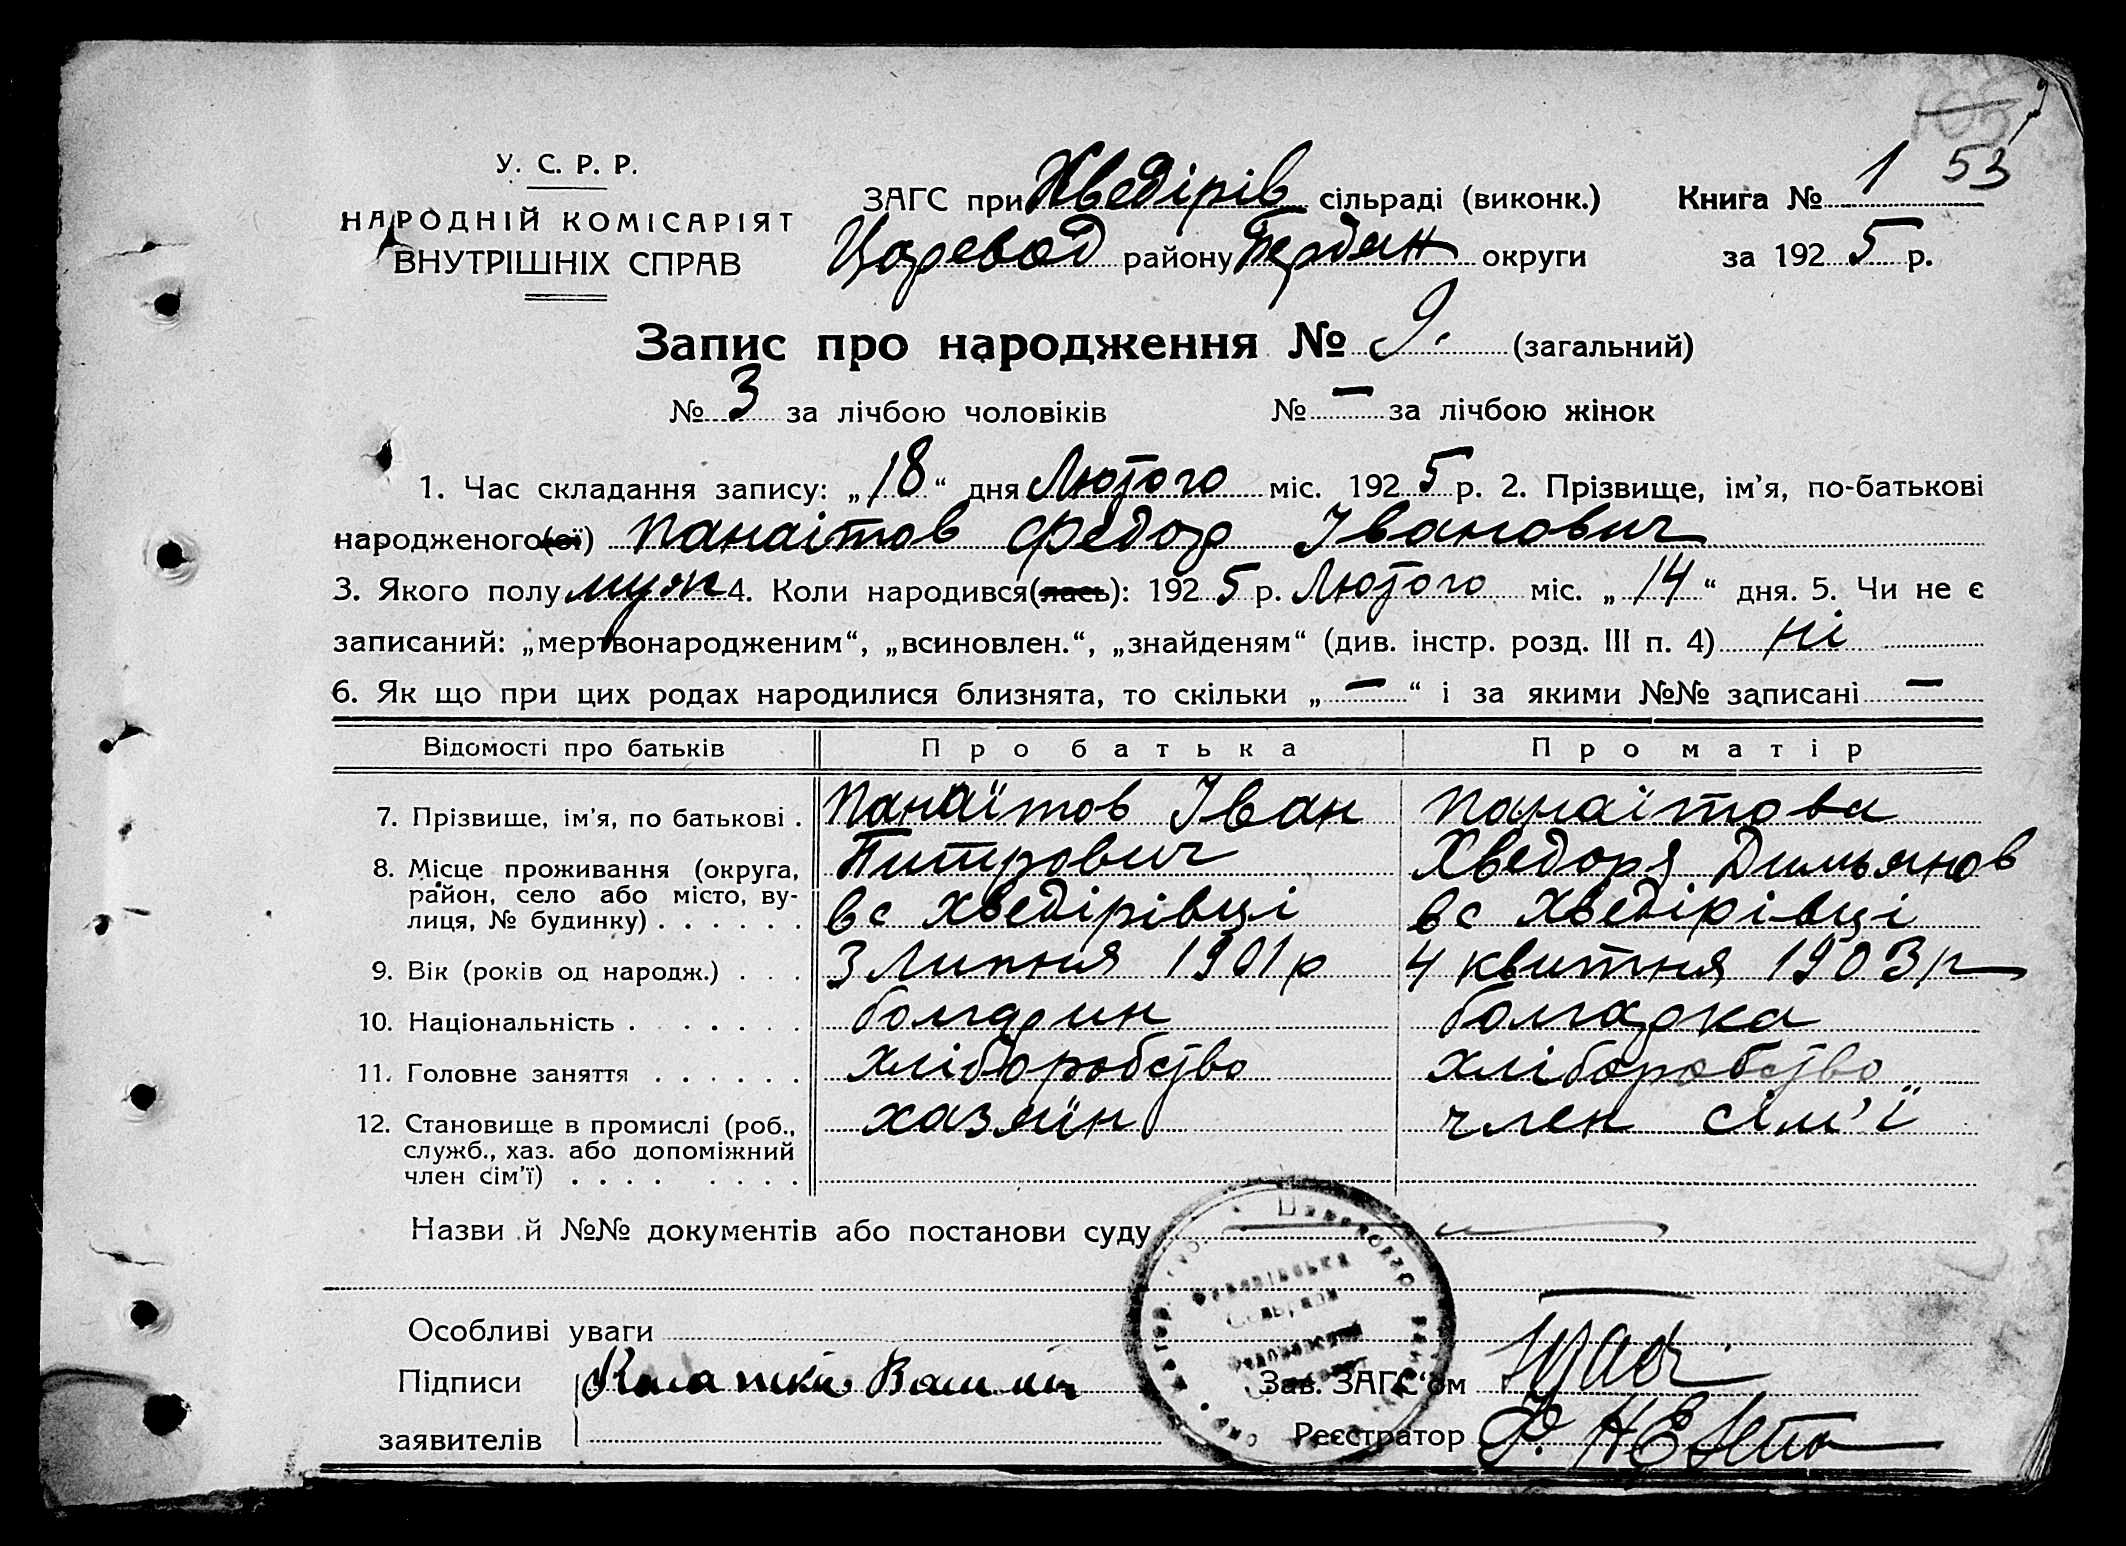 105
У. С. Р. Р.
НАРОДНІЙ КОМІСАРІЯТ
ВНУТРІШНІХ СПРАВ
ЗАГС при Хведірів сільраді (виконк.) Книга № 1 53
Царевод району Бердян округи за 1925 р.
Запис про народження № 9. (загальний)
№ 3 за лічбою чоловіків № — за лічбою жінок
1. Час складання запису: „18“ дня Лютого міс. 1925 р. 2. Прізвище, ім’я, по-батькові
народженого(ої) Панаітов Федор Іванович
3. Якого полу муж 4. Коли народився(лась): 1925 р. Лютого міс. „14“ дня. 5. Чи не є
записаний: „мертвонародженим“, „всиновлен.“, „знайденям“ (див. інстр. розд. III п. 4) ні
6. Як що при цих родах народилися близнята, то скільки „—“ і за якими №№ записані —
Відомості про батьків Про батька Про матір
7. Прізвище, ім’я, по батькові . Панаїтов Іван Панаїтова
Питрович Хведоря Димьянов
8. Місце проживання (округа,
район, село або місто, ву-
лиця, № будинку) . . . . . . вс Хведірівці вс Хведірівці
9. Вік (років од народж.) . . . 3 Липня 1901 р 4 квитня 1903 р
10. Національність . . . . . . . болгарин болгарка
11. Головне заняття . . . . . . хліборобство хліборобство
12. Становище в промислі (роб.,
служб., хаз. або допоміжний
член сім’ї) . . . . . . . . хазяїн член сім’ї
Назви й №№ документів або постанови суду —
Особливі уваги
Підписи
заявителів
Зав. ЗАГС‘ом
Реєстратор